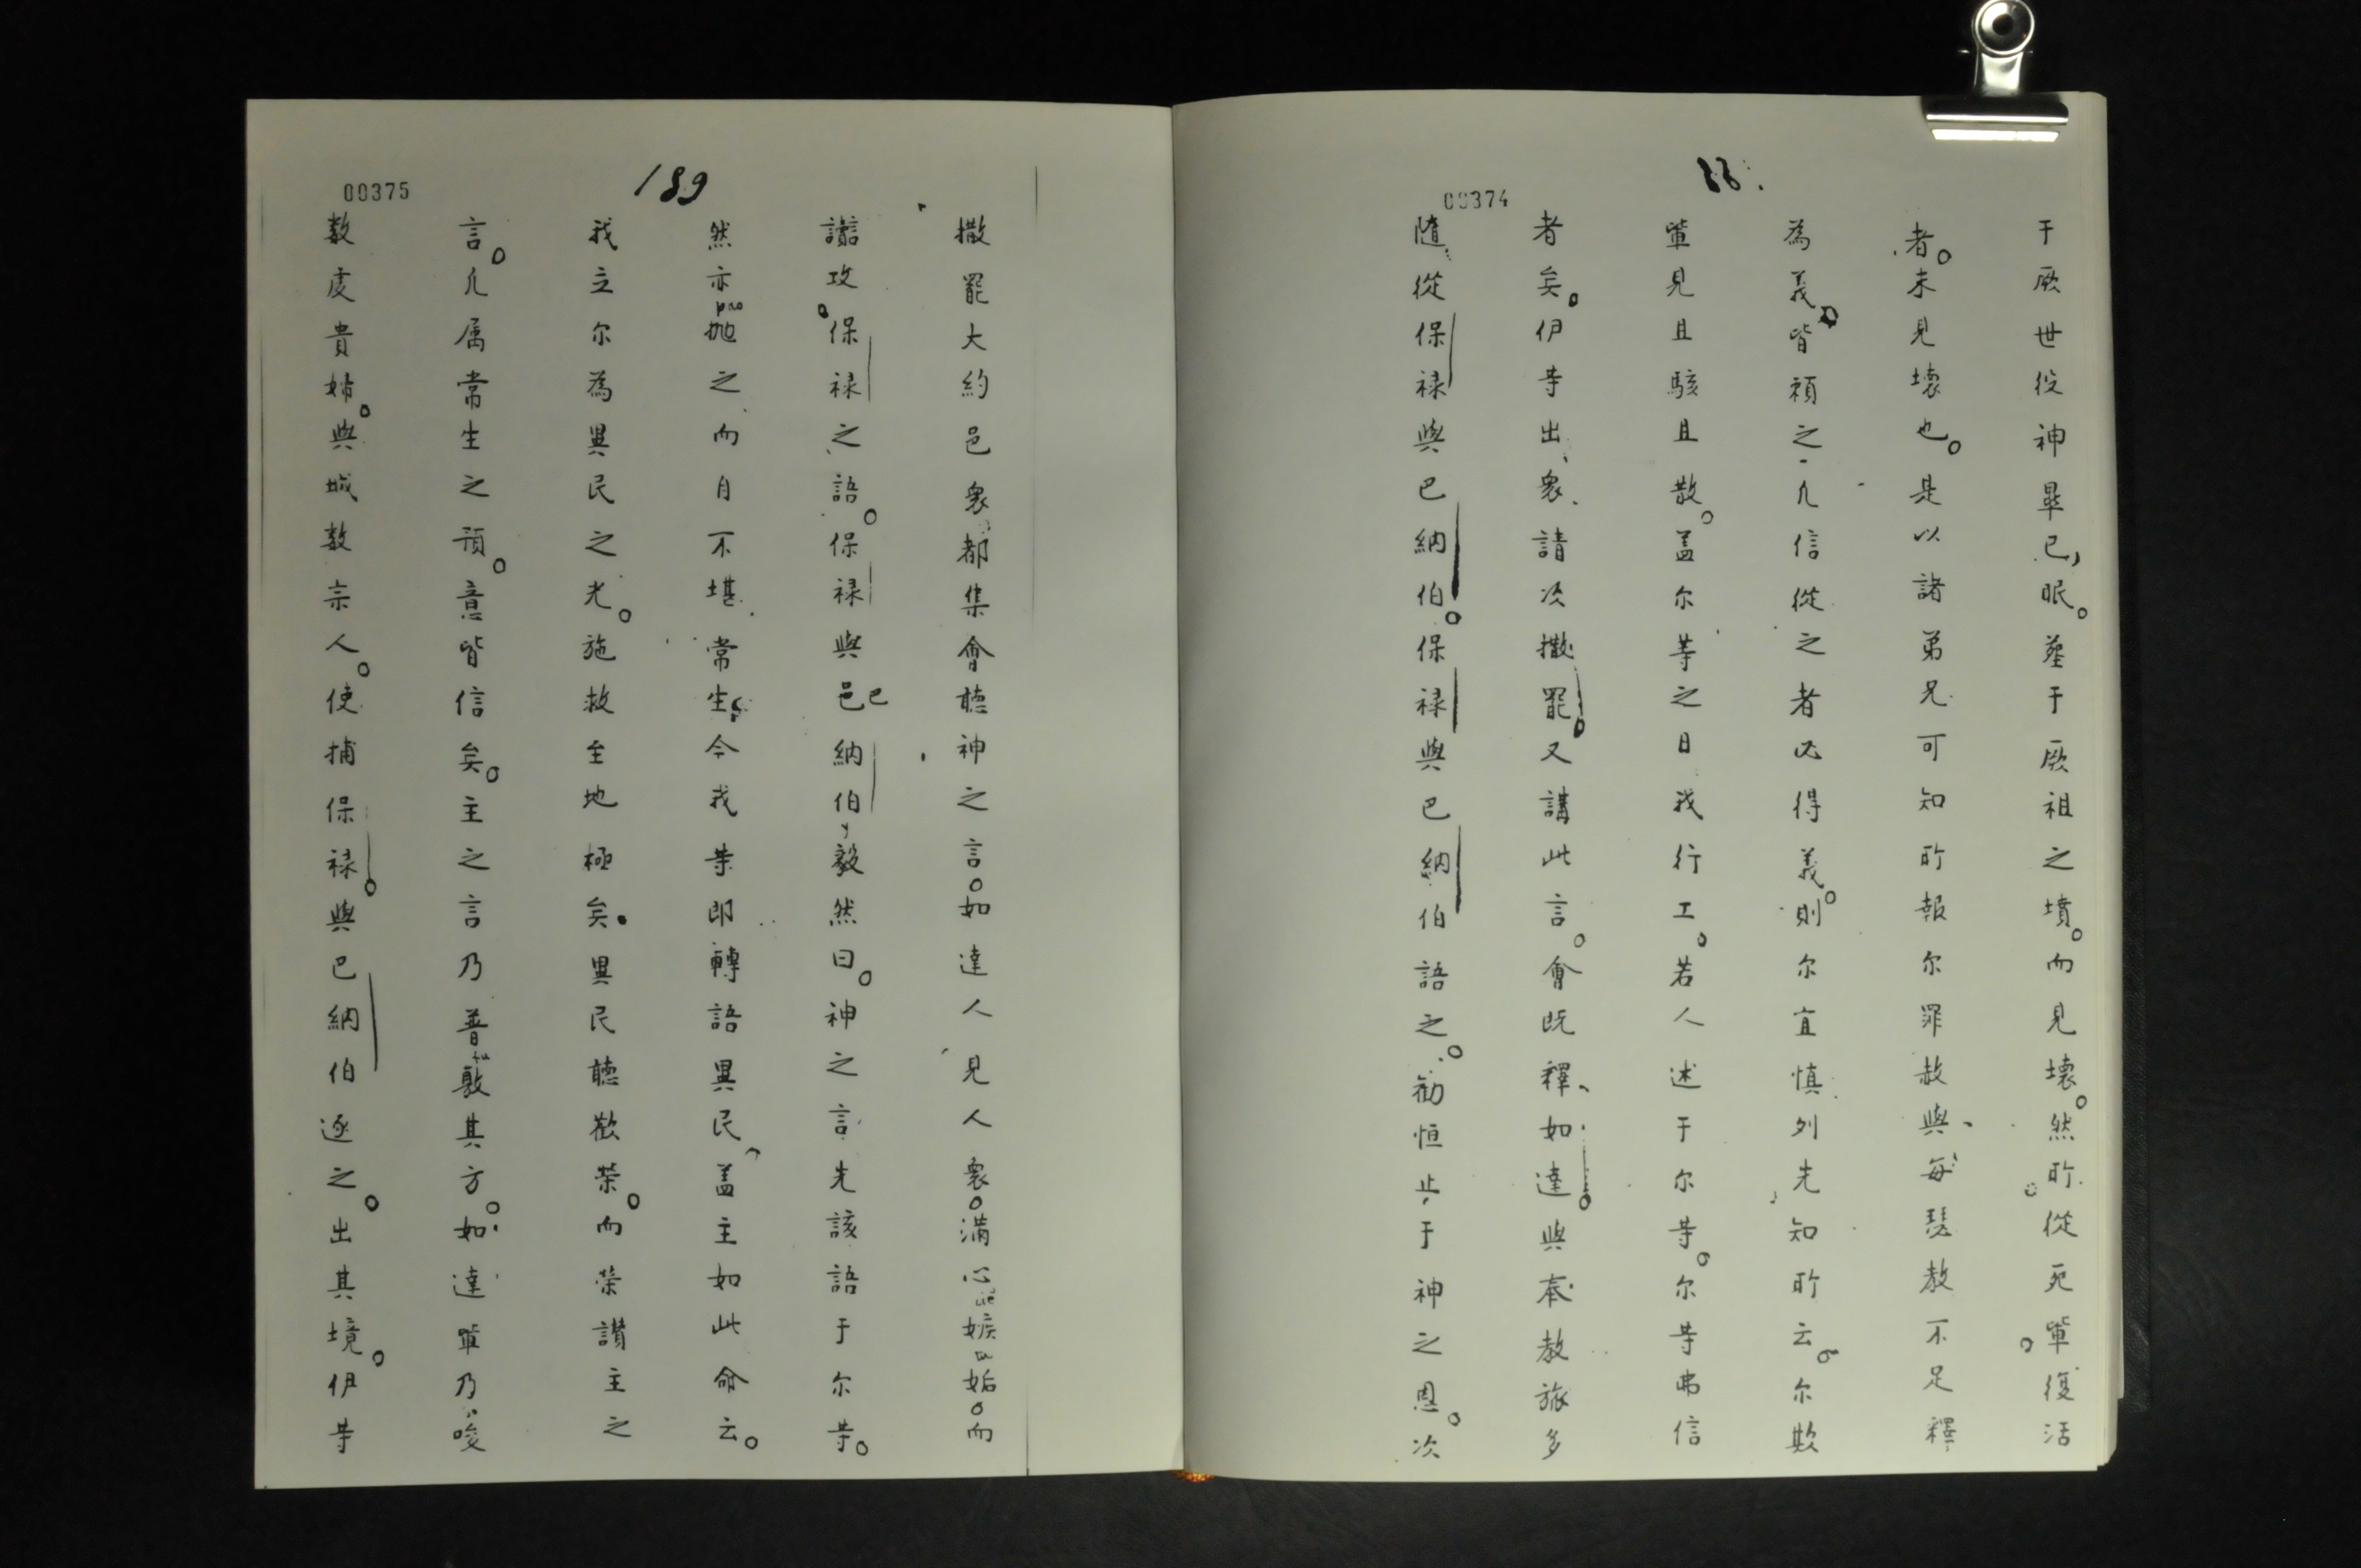 188.
00374
于厥世役神畢已，眠。塟于厥祖之墳。而見壞。然所從死軰復活
者。未見壞也。是以諸弟兄可知所報尔罪赦與、每瑟教不足釋
為義。皆須之、凡信從之者必得義。則尔宜慎列先知所云。尔欺
軰見且駭且散。盖尔等之日我行工。若人述于尔等。尔等弗信
者矣。伊等出、衆、請次撒罷。又講此言。會既釋、如達。與奉教旅多
隨從保禄與巴納伯。保禄與巴納伯語之。勸恒止于神之恩。次
189
00375
撒罷大約邑衆都集會聽神之言。如達人見人衆。滿心嫉妬。而
讒攻。保禄之語。保禄與邑巴納伯毅然曰。神之言先該語于尔等。
然亦抛之而自不堪常生。今我等即轉語異民、盖主如此命云。
我立尔為異民之光。施救至地極矣。異民聽歡榮。而榮讃主之
言。凡属常生之預。意皆信矣。主之言乃普敷其方。如達軰乃唆
数虔貴姊。與城数宗人。使捕保禄。與巴納伯逐之。出其境。伊等